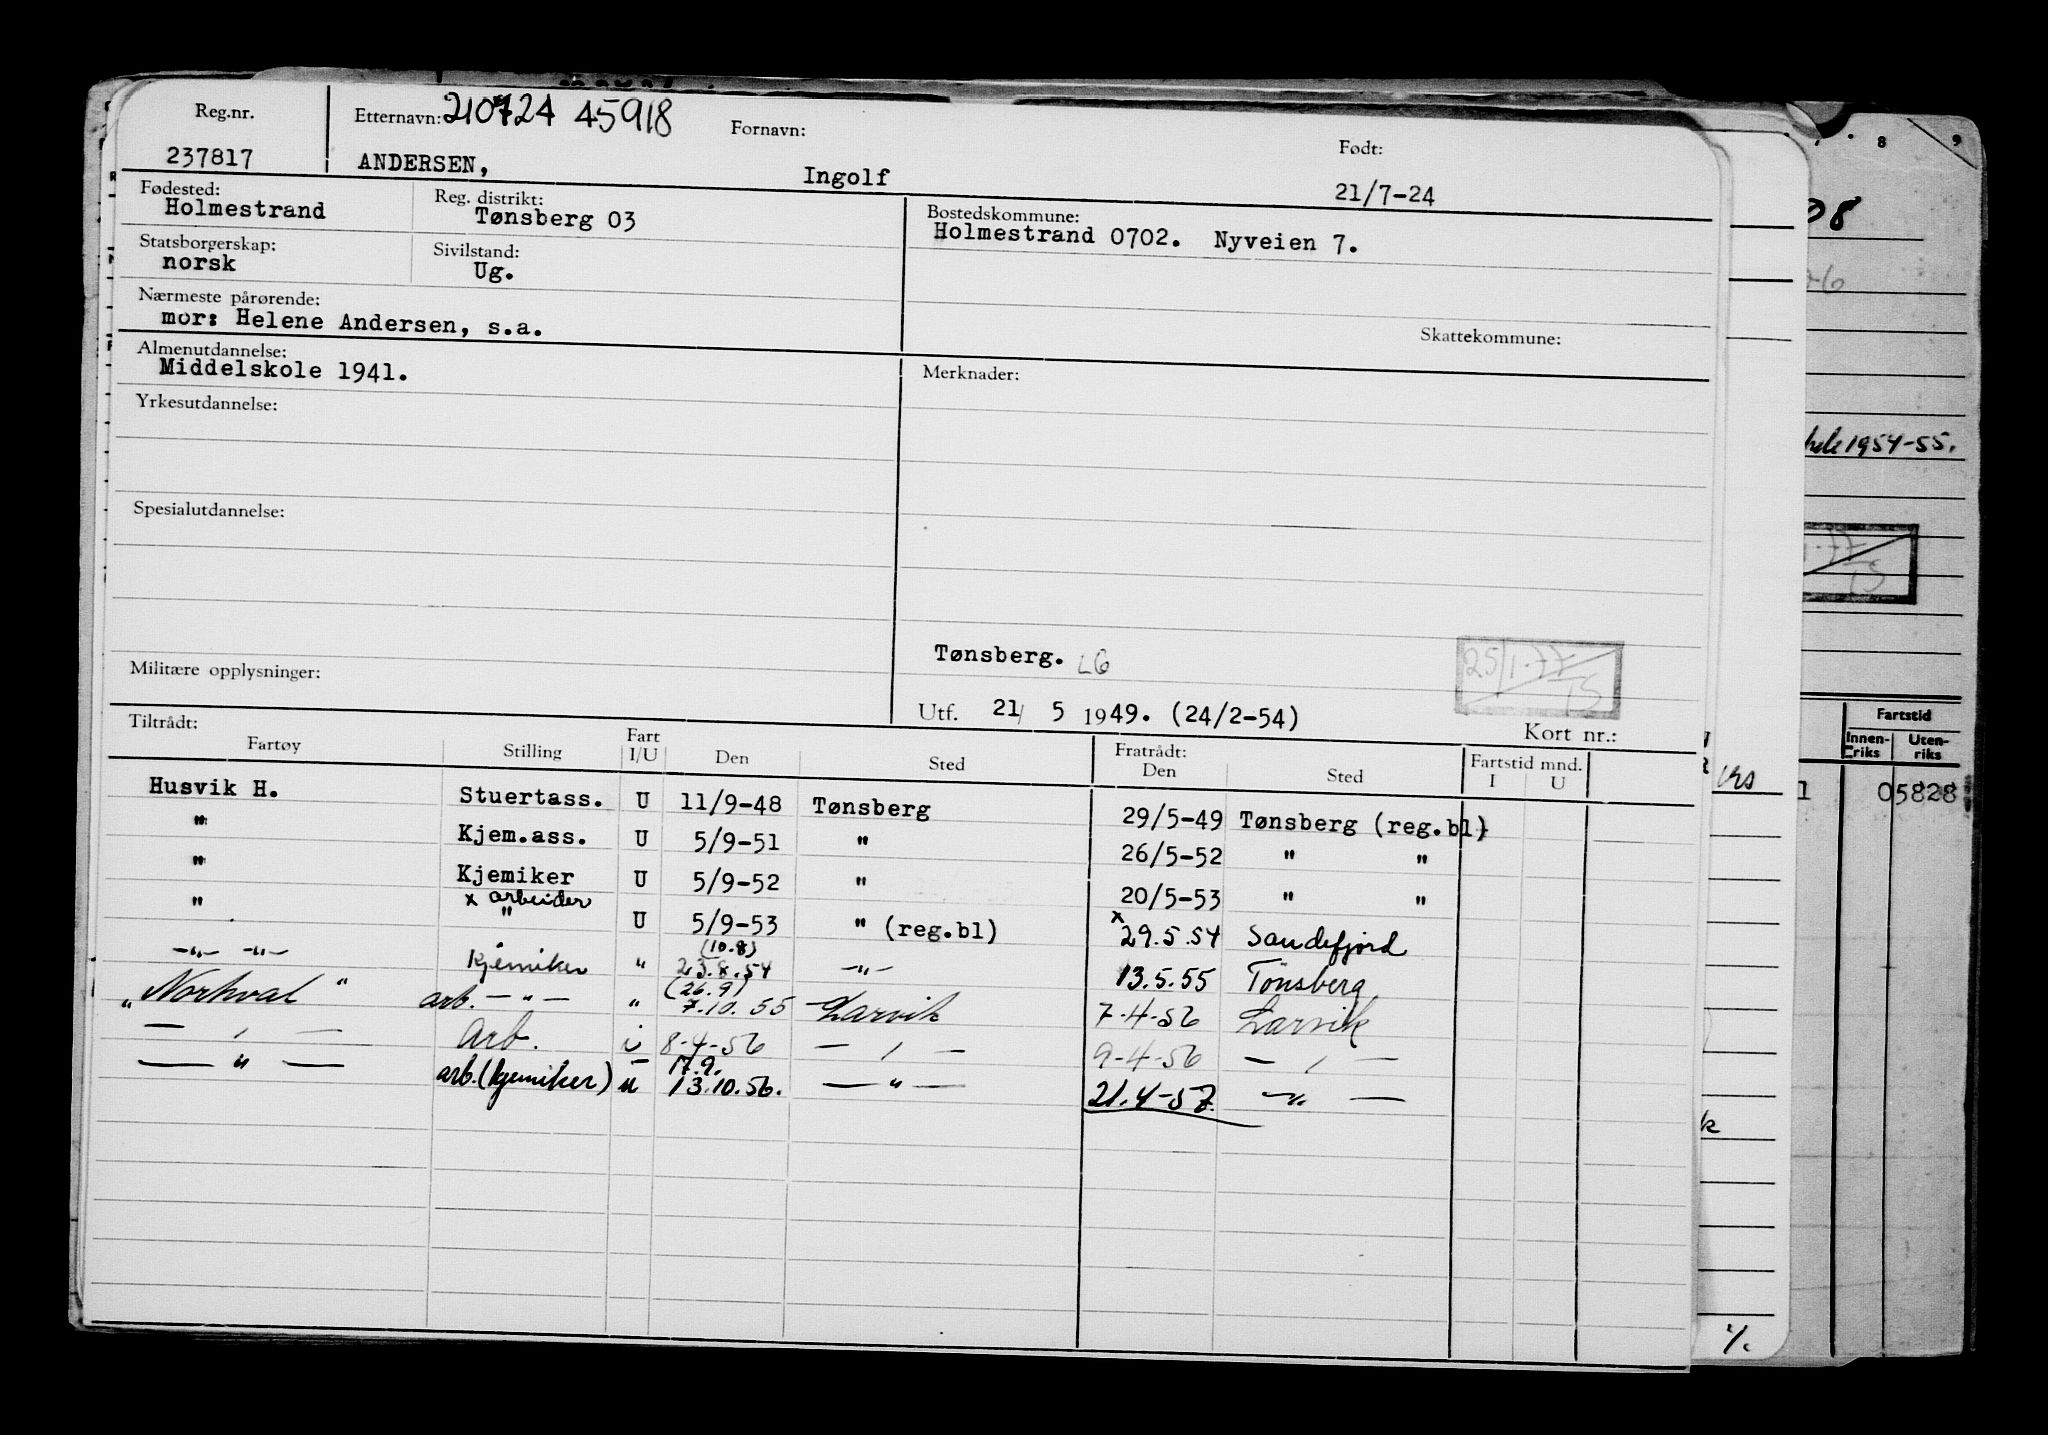 Reg.nr. Etternavn: 210724 45918 Fornavn: Født:
237817 ANDERSEN, Ingolf 21/7-24
Fødested: Reg. distrikt: Bostedskommune:
Holmestrand Tønsberg 03 Holmestrand 0702. Nyveien 7.
Statsborgerskap: Sivilstand:
norsk Ug.
Nærmeste pårørende:
mor: Helene Andersen, s.a. Skattekommune:
Almenutdannelse: Merknader:
Middelskole 1941.
Yrkesutdannelse:
Spesialutdannelse:
Tønsberg. LG 25/1-77
Militære opplysninger: TS
Utf. 21/ 5 1949. (24/2-54) Kort nr.:
Tiltrådt: Fratrådt:
Fartøy Stilling Fart I/U Den Sted Den Sted Fartstid mnd. I U
Husvik H. Stuertass. U 11/9-48 Tønsberg 29/5-49 Tønsberg (reg.bl)
" Kjem.ass. U 5/9-51 " 26/5-52 " "
" Kjemiker U 5/9-52 " 20/5-53 " "
x arbeider
" " U 5/9-53 " (reg.bl) x 29.5.54 Sandefjord
(10.8)
-"- -"- Kjemiker " 23.8.54 -"- 13.5.55 Tönsberg
(26.9)
"Norhval" arb. -"- " 7.10.55 Larvik 7-4-56 Larvik
— , — Arb. i 8-4-56 — , — 9-4-56 — , —
17.9.
— " — arb. (kjemiker) u 13.10.56. — " — 21.4-57. — " —
8 9
08
1954-55.
Fartstid
Innenriks Utenriks
1 05828
%